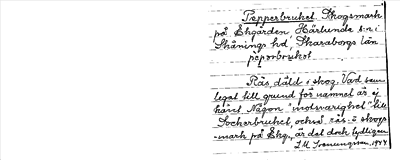 Pepperbruket Skogsmark
på Ekgården, Härlunda sn i
Skånings hd, Skaraborgs län
peporbrukot
Räs, däld i skog. Vad som
legat till grund för namnet är ej
känt. Någon "motsvarighet" till
Sockerbruket, också räs- o skogs-
mark på Ekg., är det dock tydligen
J. M. 1944